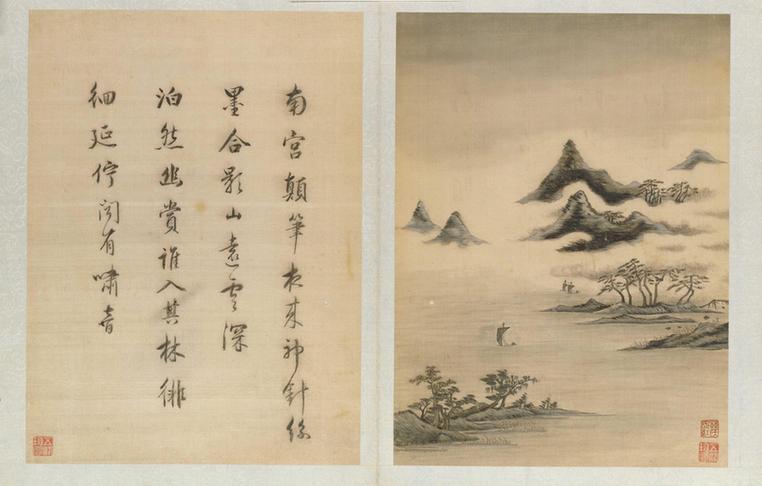 南宮顛筆夜来神針絲
墨合影山遠雲深
泊然幽賞誰入其林徘
徊延佇聞有嘯音